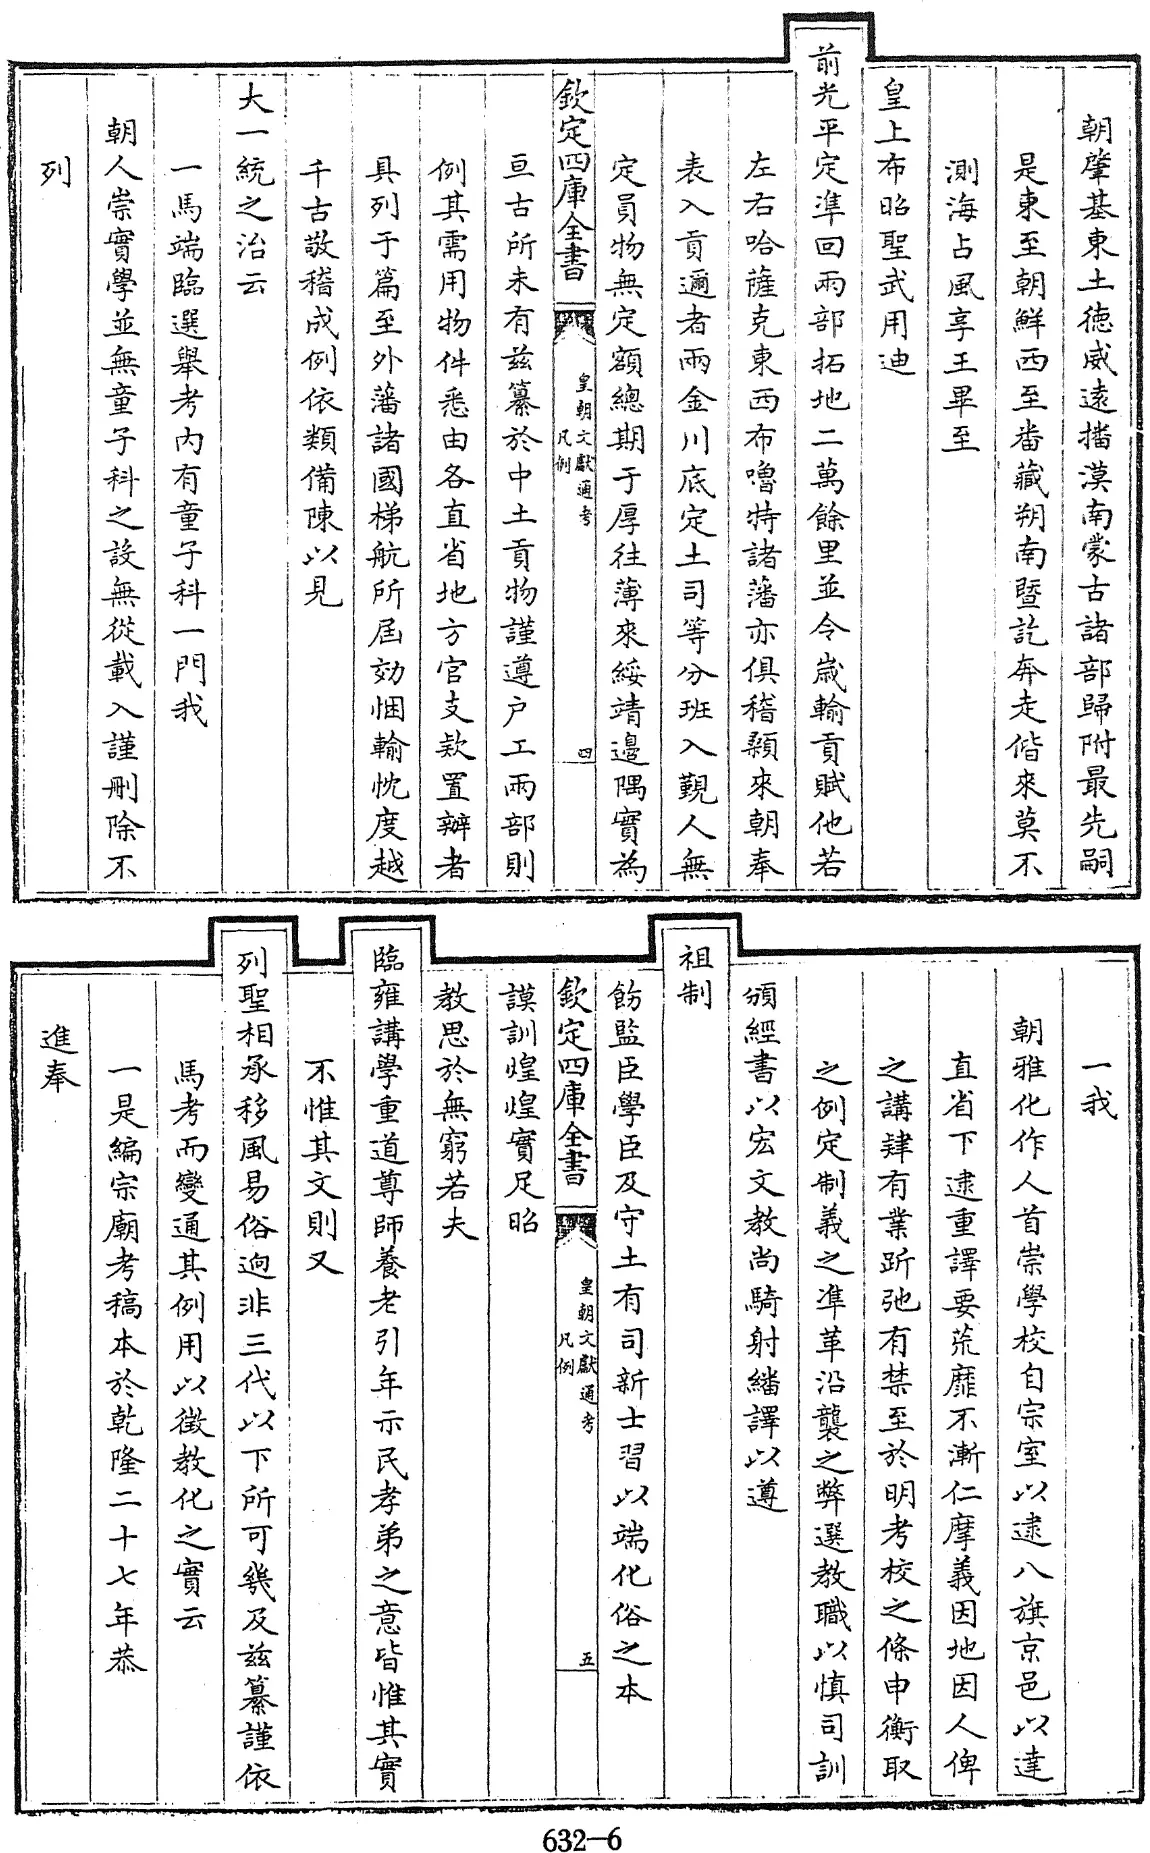 朝肇基東土徳威逺播漠南蒙古諸部歸附最先嗣
是東至朝鮮西至畨藏朔南暨訖奔走偕來莫不
測海占風享王畢至
皇上布昭聖武用迪
前光平定凖回兩部拓地二萬餘里並令嵗輸貢賦他若
左右哈薩克東西布嚕特諸藩亦俱稽顙來朝奉
表入貢邇者兩金川底定土司等分班入覲人無
定員物無定額總期于厚往薄來綏靖邊隅實為
欽定四庫全書
皇朝文獻通考
凡例
四
亘古所未有兹纂於中土貢物謹遵户工兩部則
例其需用物件悉由各直省地方官支欵置辦者
具列于篇至外藩諸國梯航所屆効悃輸忱度越
千古敬稽成例依類備陳以見
大一統之治云
一馬端臨選舉考内有童子科一門我
朝人崇實學並無童子科之設無從載入謹刪除不
列
一我
朝雅化作人首崇學校自宗室以逮八旗京邑以達
直省下逮重譯要荒靡不漸仁摩義因地因人俾
之講肄有業跅弛有禁至於明考校之條申衡取
之例定制義之凖革沿襲之弊選教職以慎司訓
頒經書以宏文教尚騎射繙譯以遵
祖制
飭監臣學臣及守土有司新士習以端化俗之本
欽定四庫全書
皇朝文獻通考
凡例
五
謨訓煌煌實足昭
教思於無窮若夫
臨雍講學重道尊師養老引年示民孝弟之意皆惟其實
不惟其文則又
列聖相承移風易俗逈非三代以下所可幾及兹纂謹依
馬考而變通其例用以徴教化之實云
一是編宗廟考稿本於乾隆二十七年恭
進奉
632-6